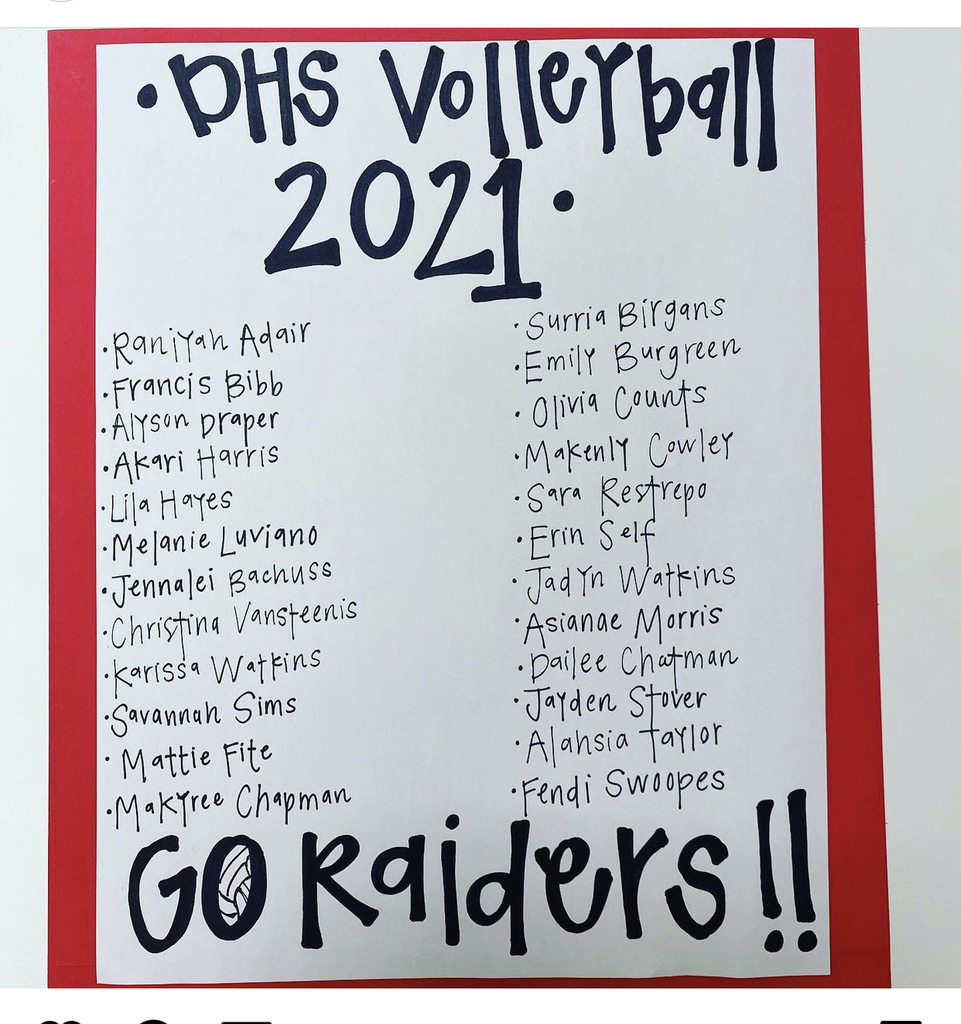 •DHS Volleyball
2021•
•Raniyah Adair
•Francis Bibb
•Alyson Draper
•Akari Harris
•Lila Hayes
•Melanie Luviano
•Jennalei Bachuss
•Christina Vansteenis
•Karissa Watkins
•Savannah Sims
•Mattie Fite
•Makyree Chapman
•Surria Birgans
•Emily Burgreen
•Olivia Counts
•Makenly Cowley
•Sara Restrepo
•Erin Self
•Jadyn Watkins
•Asianae Morris
•Dailee Chatman
•Jayden Stover
•Alahsia Taylor
•Fendi Swoopes
GO Raiders!!